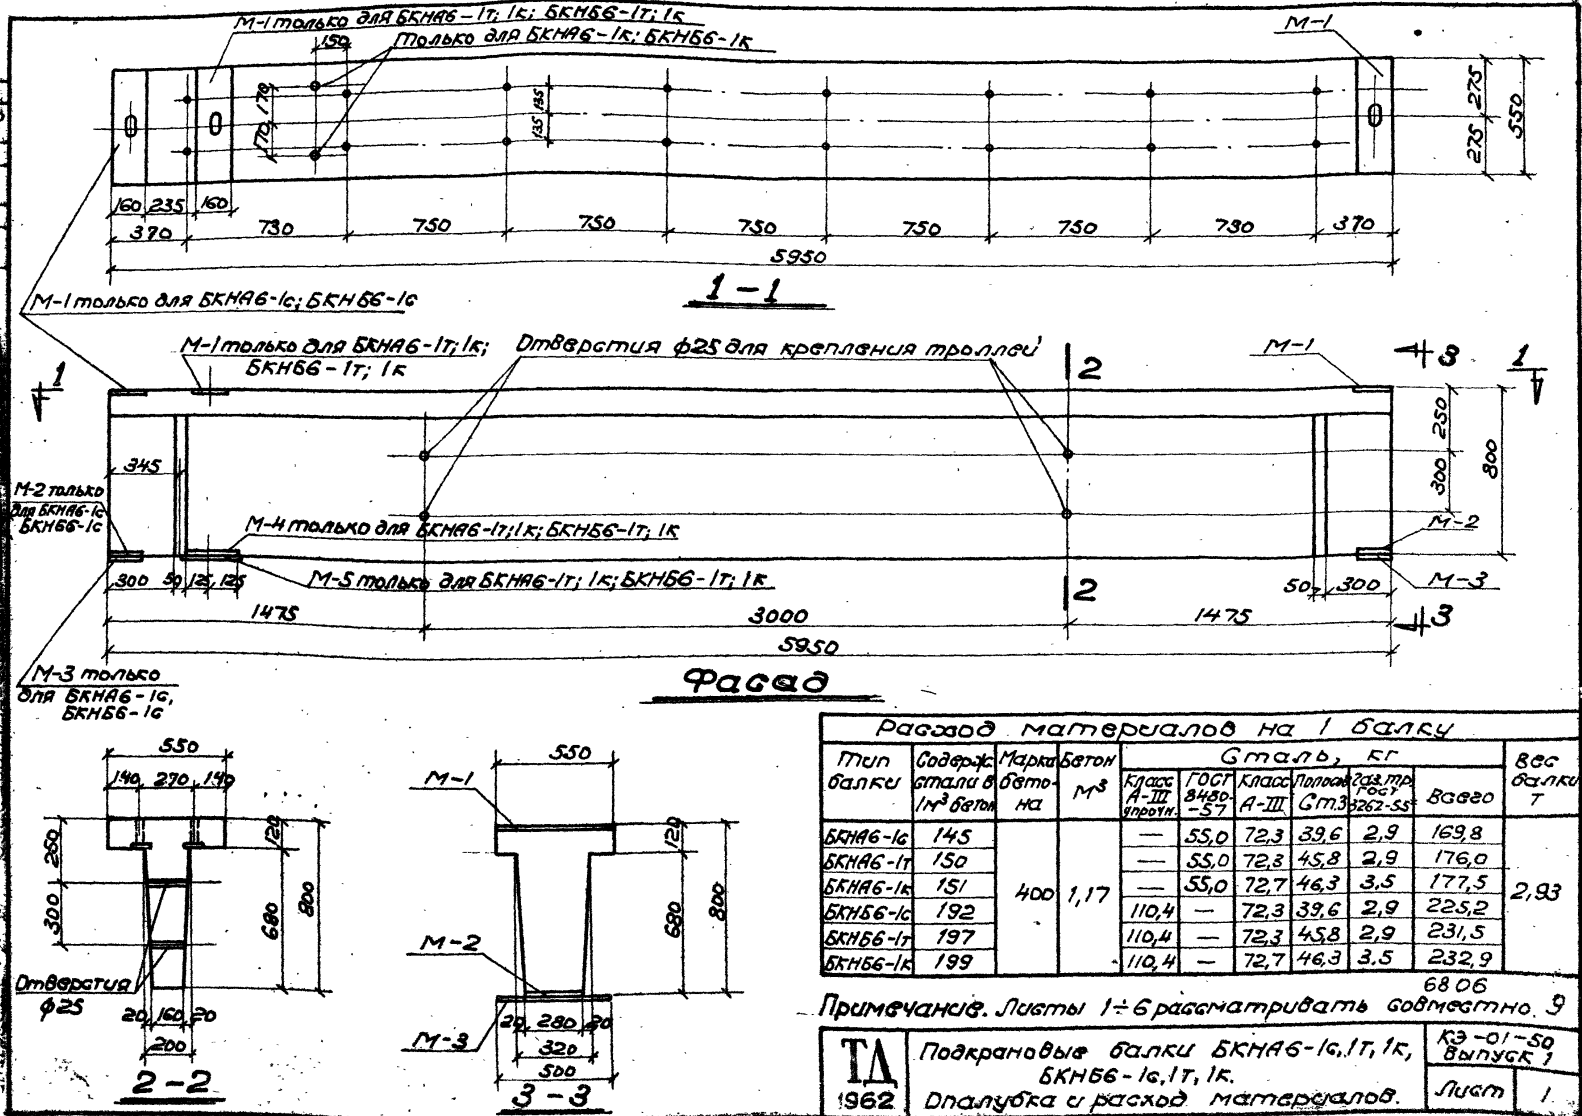 М-1 только для БКНА6-1т; 1к; БКНБ6-1т; 1к
только для БКНА6-1к; БКНБ6-1к
М-1
150
170, 170
135 135
275 275
550
160 235 160
370 730 750 750 750 750 750 730 370
5950
1-1
М-1 только для БКНА6-1с; БКНБ6-1с
М-1 только для БКНА6-1т; 1к;
БКНБ6-1т; 1к
Отверстия ф25 для крепления троллей
М-1
1
2
3
1
345
250
300
800
М-2 только
для БКНА6-1с
БКНБ6-1с
М-4 только для БКНА6-1т; 1к; БКНБ6-1т; 1к
М-2
М-5 только для БКНА6-1т; 1к; БКНБ6-1т; 1к
М-3
300 50 125 125
50 300
2
3
1475 3000 1475
5950
М-3 только
для БКНА6-1с,
БКНБ6-1с
Фасад
550
140 270 140
120
250
300
680
800
Отверстия
ф25
20 160 20
200
2-2
550
М-1
120
680
800
М-2
М-3
20 280 20
320
500
3-3
Расход материалов на 1 балку
Тип балки Содерж. стали в 1м³ бетон Марка бето-на Бетон м³ Сталь, кг Вес балки т
Класс А-III упрочн. ГОСТ 8480-57 Класс А-III Полоса Ст.3 Газ.тр. ГОСТ 3262-55 Всего
БКНА6-1с 145 — 55,0 72,3 39,6 2,9 169,8
БКНА6-1т 150 — 55,0 72,3 45,8 2,9 176,0
БКНА6-1к 151 400 1,17 — 55,0 72,7 46,3 3,5 177,5 2,93
БКНБ6-1с 192 110,4 — 72,3 39,6 2,9 225,2
БКНБ6-1т 197 110,4 — 72,3 45,8 2,9 231,5
БКНБ6-1к 199 110,4 — 72,7 46,3 3.5 232,9
6806
Примечание. Листы 1÷6 рассматривать совместно. 9
ТД
1962
Подкрановые балки БКНА6-1с, 1т, 1к,
БКНБ6-1с, 1т, 1к.
Опалубка и расход материалов.
КЭ-01-50
Выпуск 1
Лист 1